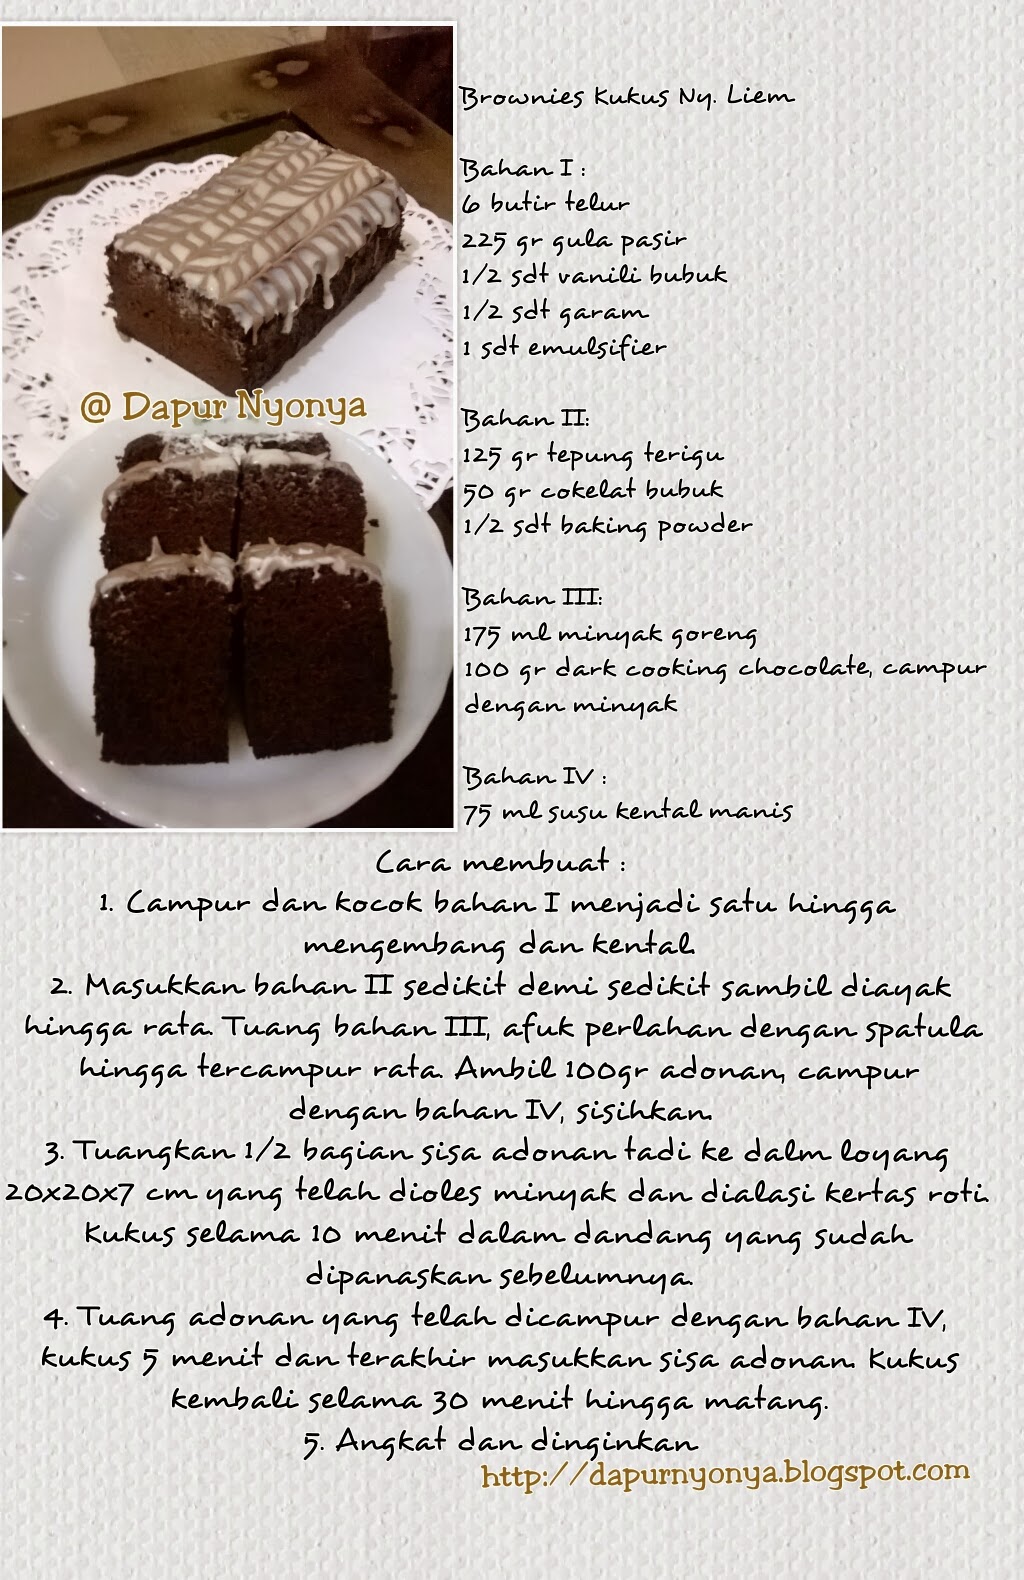 Brownies Kukus Ny. Liem
Bahan I :
6 butir telur
225 gr gula pasir
1/2 sdt vanili bubuk
1/2 sdt garam
1 sdt emulsifier
@ Dapur Nyonya
Bahan II:
125 gr tepung terigu
50 gr cokelat bubuk
1/2 sdt baking powder
Bahan III:
175 ml minyak goreng
100 gr dark cooking chocolate, campur
dengan minyak
Bahan IV :
75 ml susu kental manis
Cara membuat :
1. Campur dan kocok bahan I menjadi satu hingga
mengembang dan kental.
2. Masukkan bahan II sedikit demi sedikit sambil diayak
hingga rata. Tuang bahan III, afuk perlahan dengan spatula
hingga tercampur rata. Ambil 100gr adonan, campur
dengan bahan IV, sisihkan.
3. Tuangkan 1/2 bagian sisa adonan tadi ke dalm loyang
20x20x7 cm yang telah dioles minyak dan dialasi kertas roti.
Kukus selama 10 menit dalam dandang yang sudah
dipanaskan sebelumnya.
4. Tuang adonan yang telah dicampur dengan bahan IV,
kukus 5 menit dan terakhir masukkan sisa adonan. Kukus
kembali selama 30 menit hingga matang.
5. Angkat dan dinginkan
http://dapurnyonya.blogspot.com